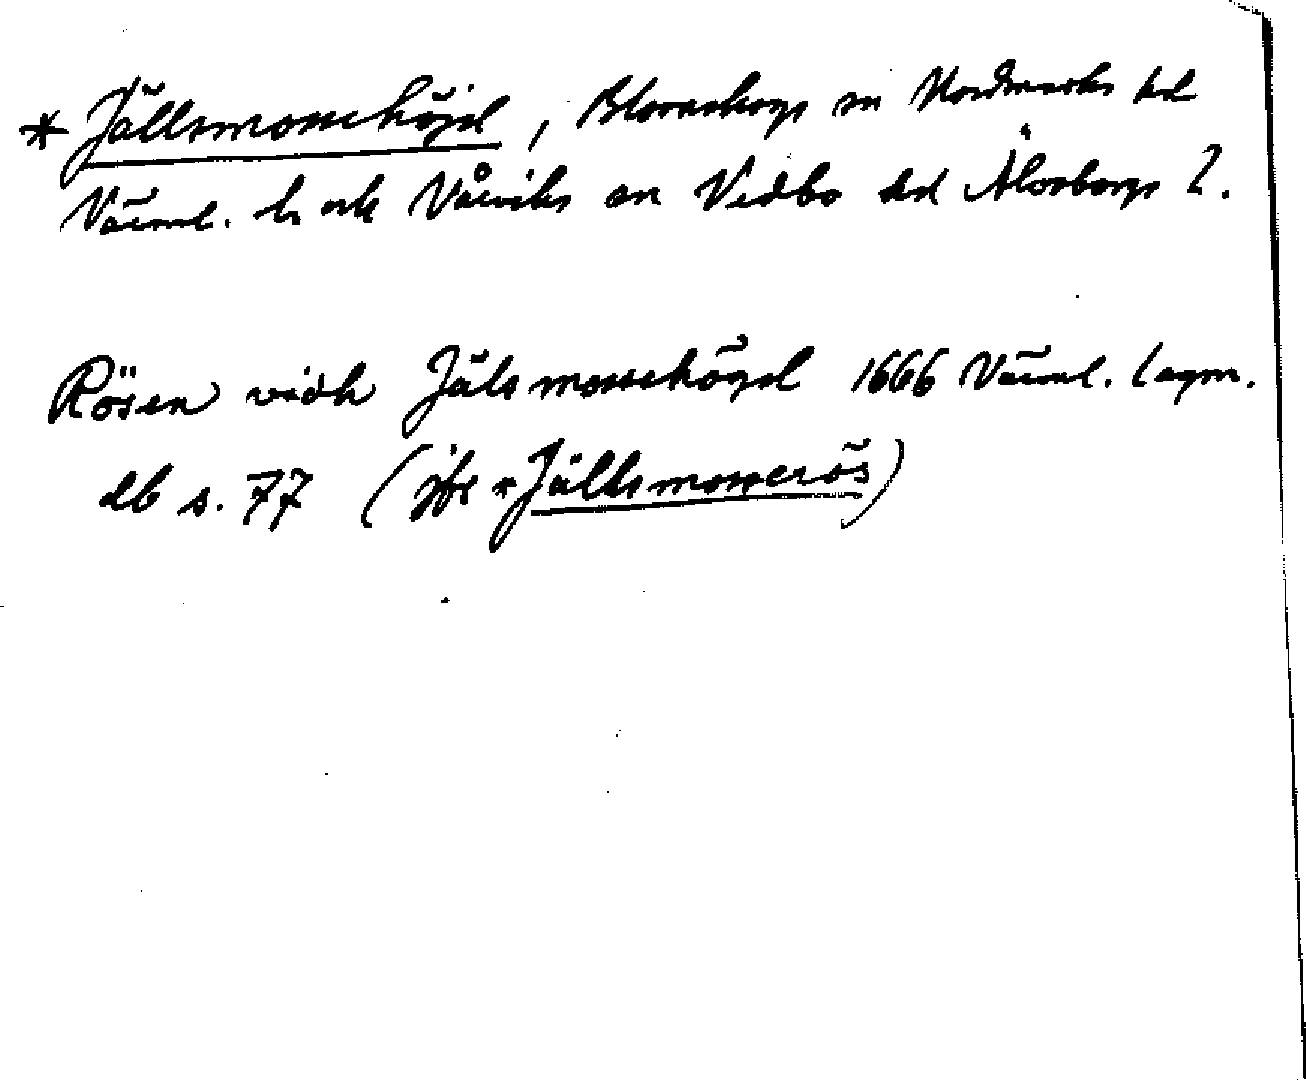 * Jällsmossehöjd, Blomskogs sn Nordmarks hd
Värml. l. och Vårviks sn Vedbo hd Älvsborgs l.
Rösen vidh Jälsmossehögd 1666 Värml. lagm.
db s. 77 (jfr *Jällsmosserös)